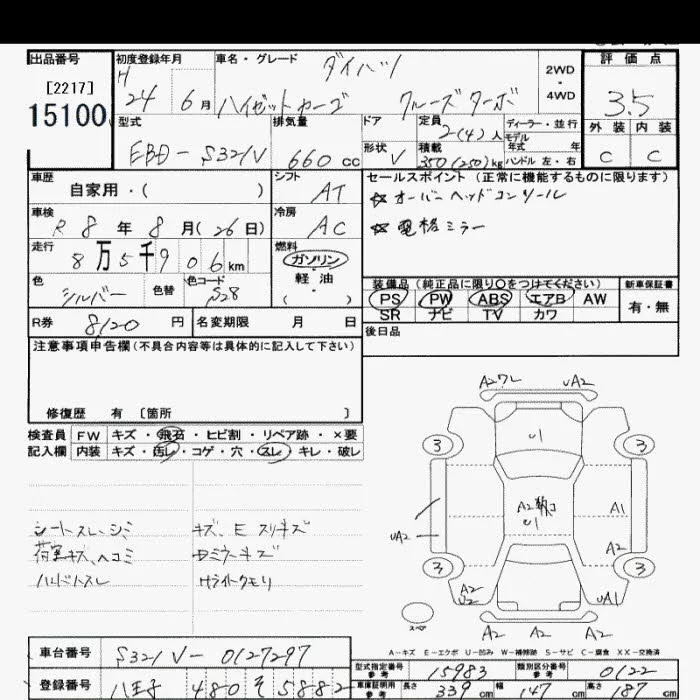 出品番号 初度登録年月 車名・グレード ダイハツ 2WD・4WD 評価点
[2217] H
15100 24 6月 ハイゼットカーゴ クルーズターボ 3.5
型式 排気量 ドア 定員 2(4)人 ディーラー・並行 外装 内装
モデル年式 年
EBD-S321V 660cc 形状 V 積載 350(250)kg ハンドル 左・右 C C
車歴 自家用・( ) シフト AT セールスポイント (正常に機能するものに限ります)
☆ オーバーヘッドコンソール
車検 R8年8月(26日) 冷房 AC
☆ 電格ミラー
走行 8万5千906km 燃料 ガソリン・軽油・( )
色 シルバー 色替 色コード S28
装備品 (純正品に限り○をつけてください) 新車保証書
PS PW ABS エアB AW 有・無
SR ナビ TV カワ
R券 8120円 名変期限 月 日 後日品
注意事項申告欄(不具合内容等は具体的に記入して下さい)
修復歴 有 〔箇所 〕
検査員 FW キズ・飛石・ヒビ割・リペア跡・×要
記入欄 内装 キズ・汚レ・コゲ・穴・スレ・キレ・破レ
シートスレ、シミ キズ、E スリキズ
荷室キズ、ヘコミ
ハンドルスレ Hライトクモリ
A2ワレ UA2
U1
3 3
A2 A1
U1
UA2 A2
3 3
A2 UA1
U2
スペア
A2 A2 A2
A-キズ E-エクボ U-凹み W-補修跡 S-サビ C-腐食 XX-交換済
車台番号 S321V-0127297
型式指定番号 参考 15983 類別区分番号 参考 0122
登録番号 八王子 480 そ 5882
車庫証明用 参考 長さ 339cm 幅 147cm 高さ 187cm